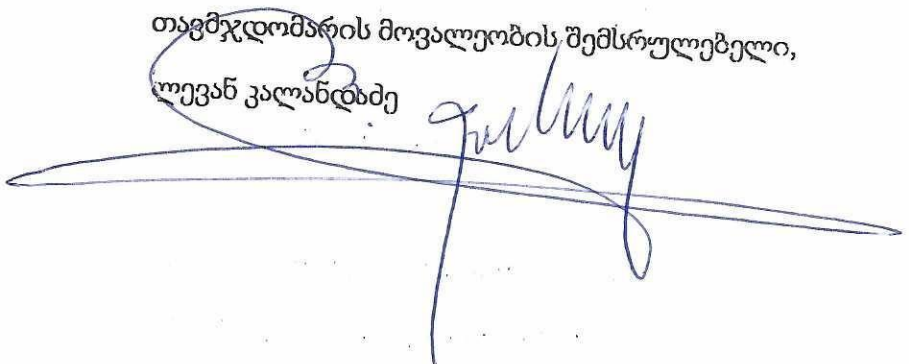 თავმჯდომარის მოვალეობის შემსრულებელი,
ლევან კალანდაძე